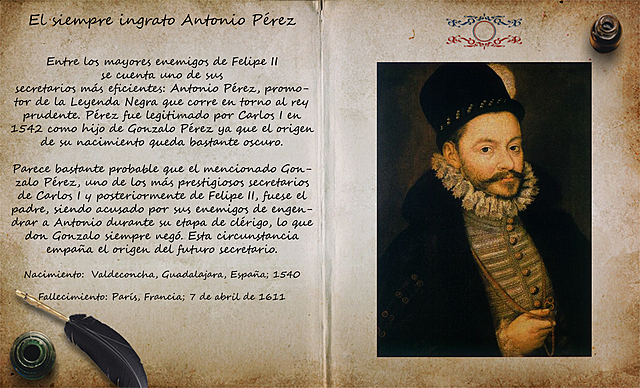 El siempre ingrato Antonio Pérez
Entre los mayores enemigos de Felipe II
se cuenta uno de sus
secretarios más eficientes: Antonio Pérez, promo-
tor de la Leyenda Negra que corre en torno al rey
prudente. Pérez fue legitimado por Carlos I en
1542 como hijo de Gonzalo Pérez ya que el origen
de su nacimiento queda bastante oscuro.
Parece bastante probable que el mencionado Gon-
zalo Pérez, uno de los más prestigiosos secretarios
de Carlos I y posteriormente de Felipe II, fuese el
padre, siendo acusado por sus enemigos de engen-
drar a Antonio durante su etapa de clérigo, lo que
don Gonzalo siempre negó. Esta circunstancia
empaña el origen del futuro secretario.
Nacimiento: Valdeconcha, Guadalajara, España; 1540
Fallecimiento: París, Francia; 7 de abril de 1611